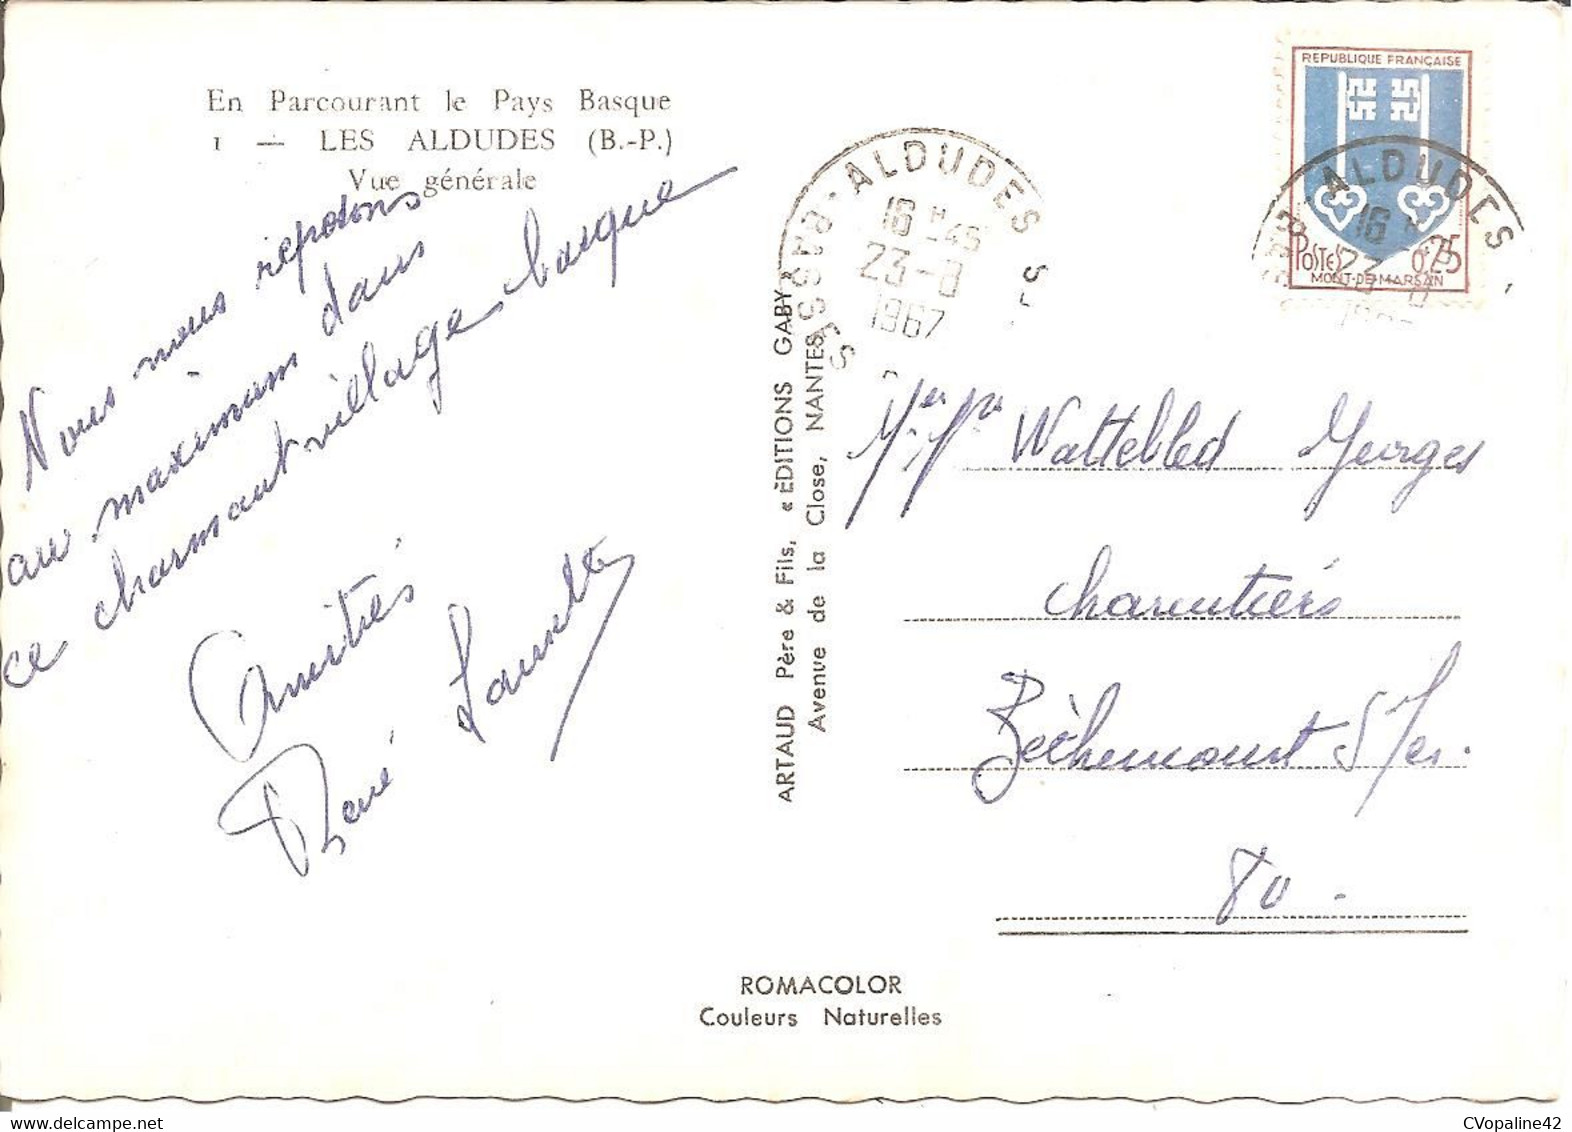 En Parcourant le Pays Basque
1 — LES ALDUDES (B.-P.)
Vue générale
Nous nous reposons
au maximum dans
ce charmant village basque
Amitiés
René
ARTAUD Père & Fils, « ÉDITIONS GABY »
Avenue de la Close, NANTES
REPUBLIQUE FRANÇAISE
POSTES 0,25
MONT-DE-MARSAN
ALDUDES
BASSES
16 H -45
23-8
1967
ALDUDES
16 H
23-8
Wattebled Georges
charentiers
Béthencourt S/Mer.
80.
ROMACOLOR
Couleurs Naturelles
CVopaline42